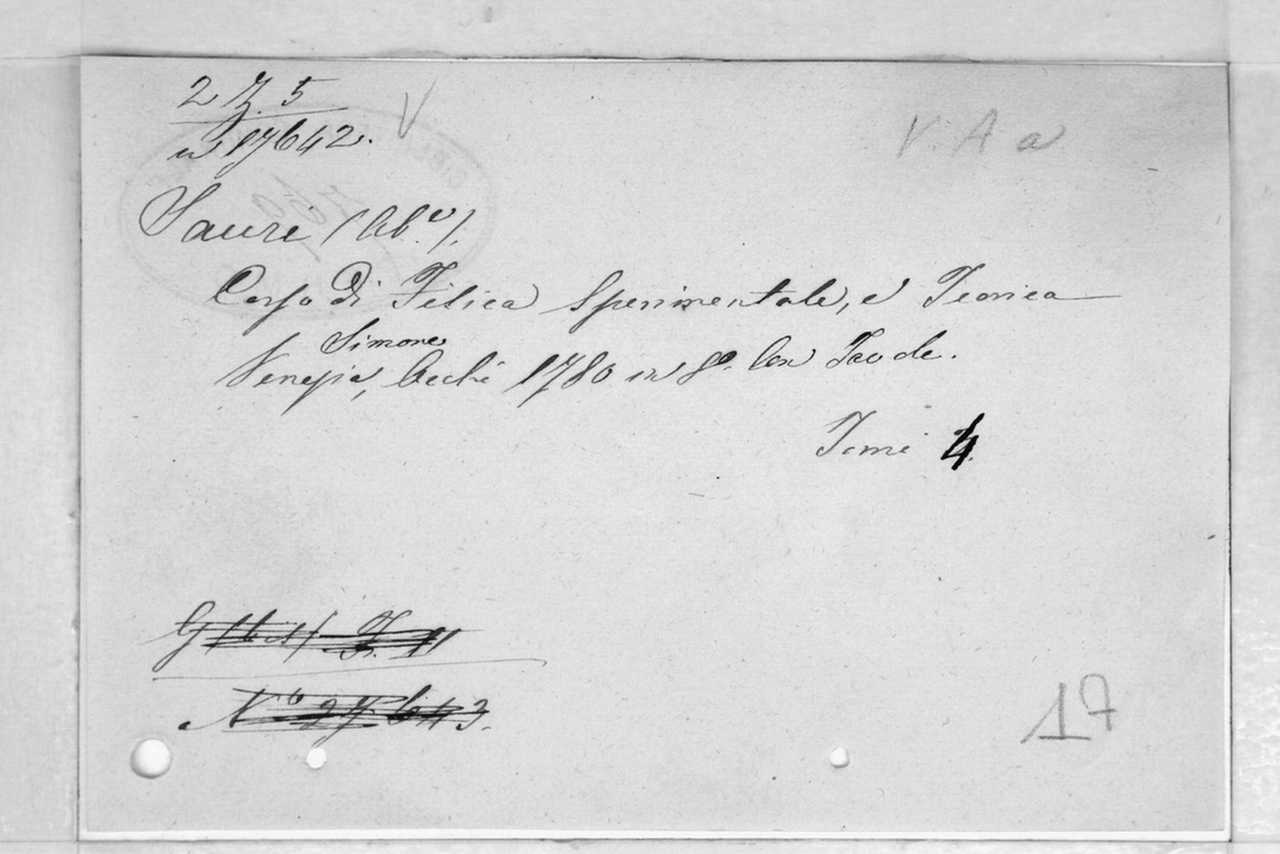 2 Z. 5
V
V. A a
n 17642.
Sauri (Ab.e).
Corso Di Fisica Sperimentale, e Teorica
Simone
Venezia, Occhi 1780 in 8º. Con Tavole.
Tomi 4.
17